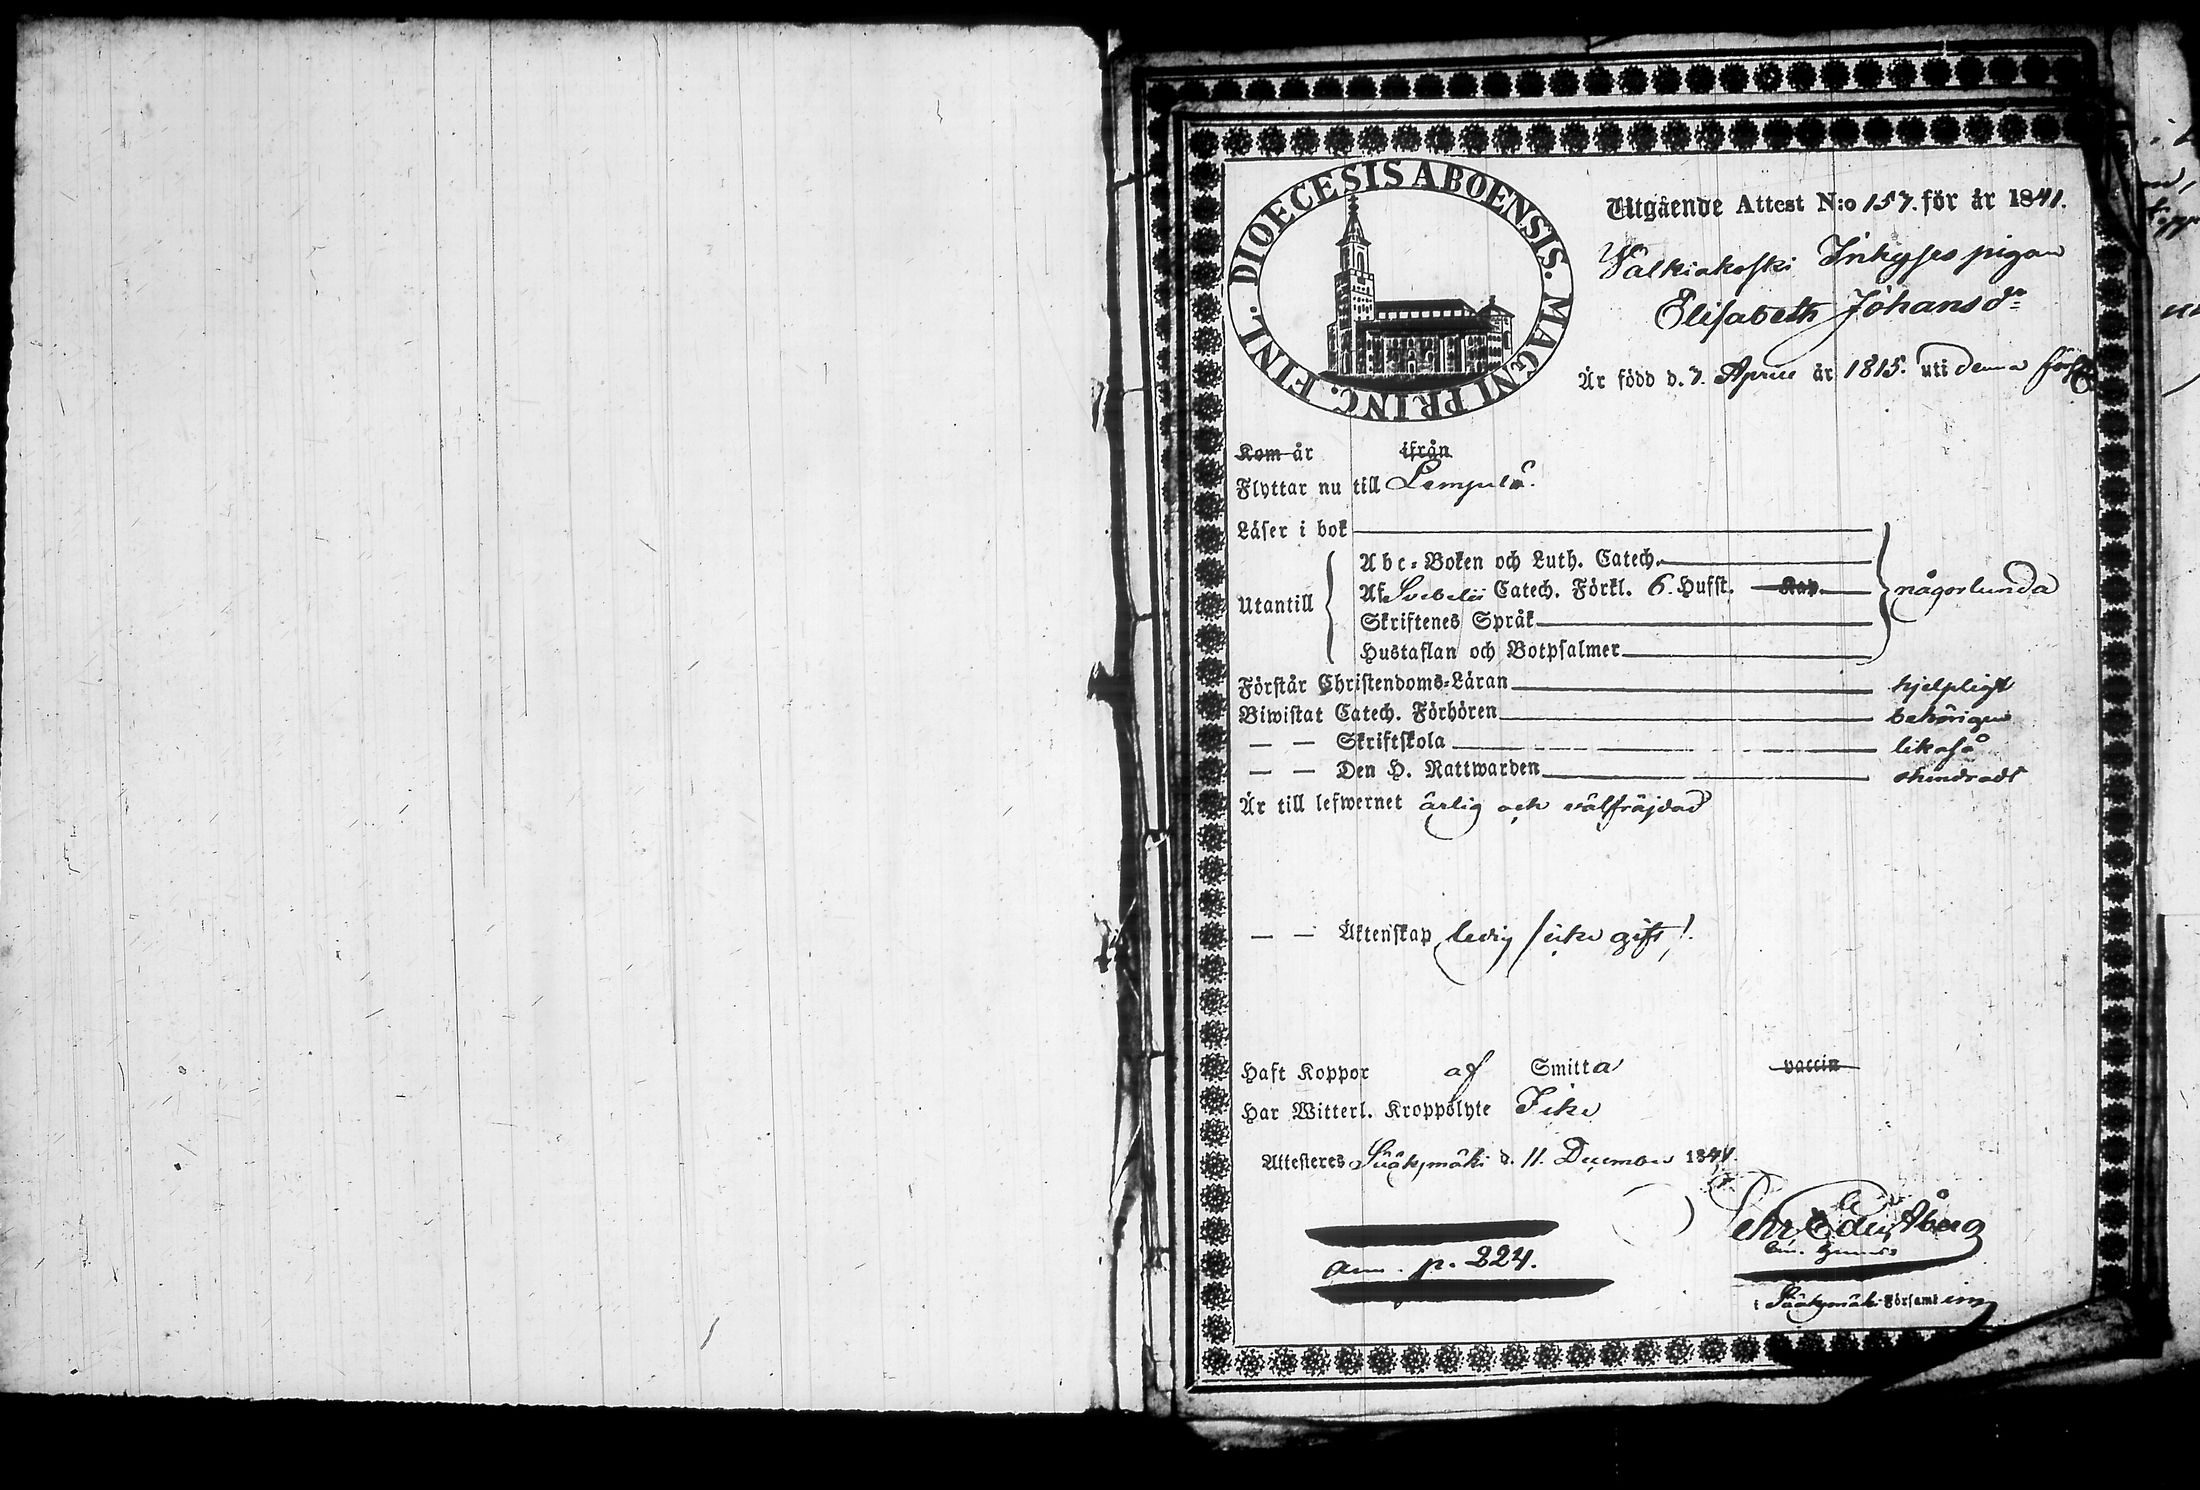 DIOECESIS ABOENSIS. MAGNI PRINC. FINL.
Utgående Attest N:o 157. för år 1841.
Walkiakoski Inhyses pigan
Elisabeth Johansdr
Är född d. 7. April år 1815. uti denna förs
Kom år ifrån
Flyttar nu till Lempälä.
Läser i bok
Utantill
Abc-Boken och Luth. Catech.
Af Svebelii Catech. Förkl. 6. Hufst. Kap.
någorlunda
Skriftenes Språk
Hustaflan och Botpsalmer
Förstår Christendoms-Läran hjelpligt
Biwistat Catech. Förhören behörigen
— — Skriftskola likaså
— — Den H. Nattwarden
Är till lefwernet ärlig och välfräjdad
— — Äktenskap ledig /icke gift/.
Haft Koppor af Smitta vaccin
Har Witterl. Kroppslyte Icke
Attesteres Sääksmäki d. 11. December 1841.
Åberg
p. 224.
i Sääksmäki Församling